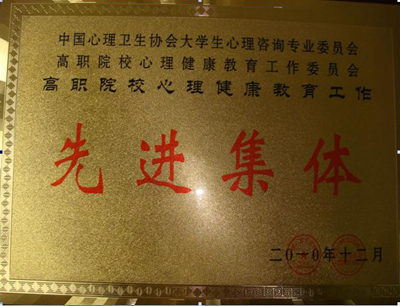 中国心理卫生协会大学生心理咨询专业委员会
高职院校心理健康教育工作委员会
高职院校心理健康教育工作
先进集体
二○一○年十二月